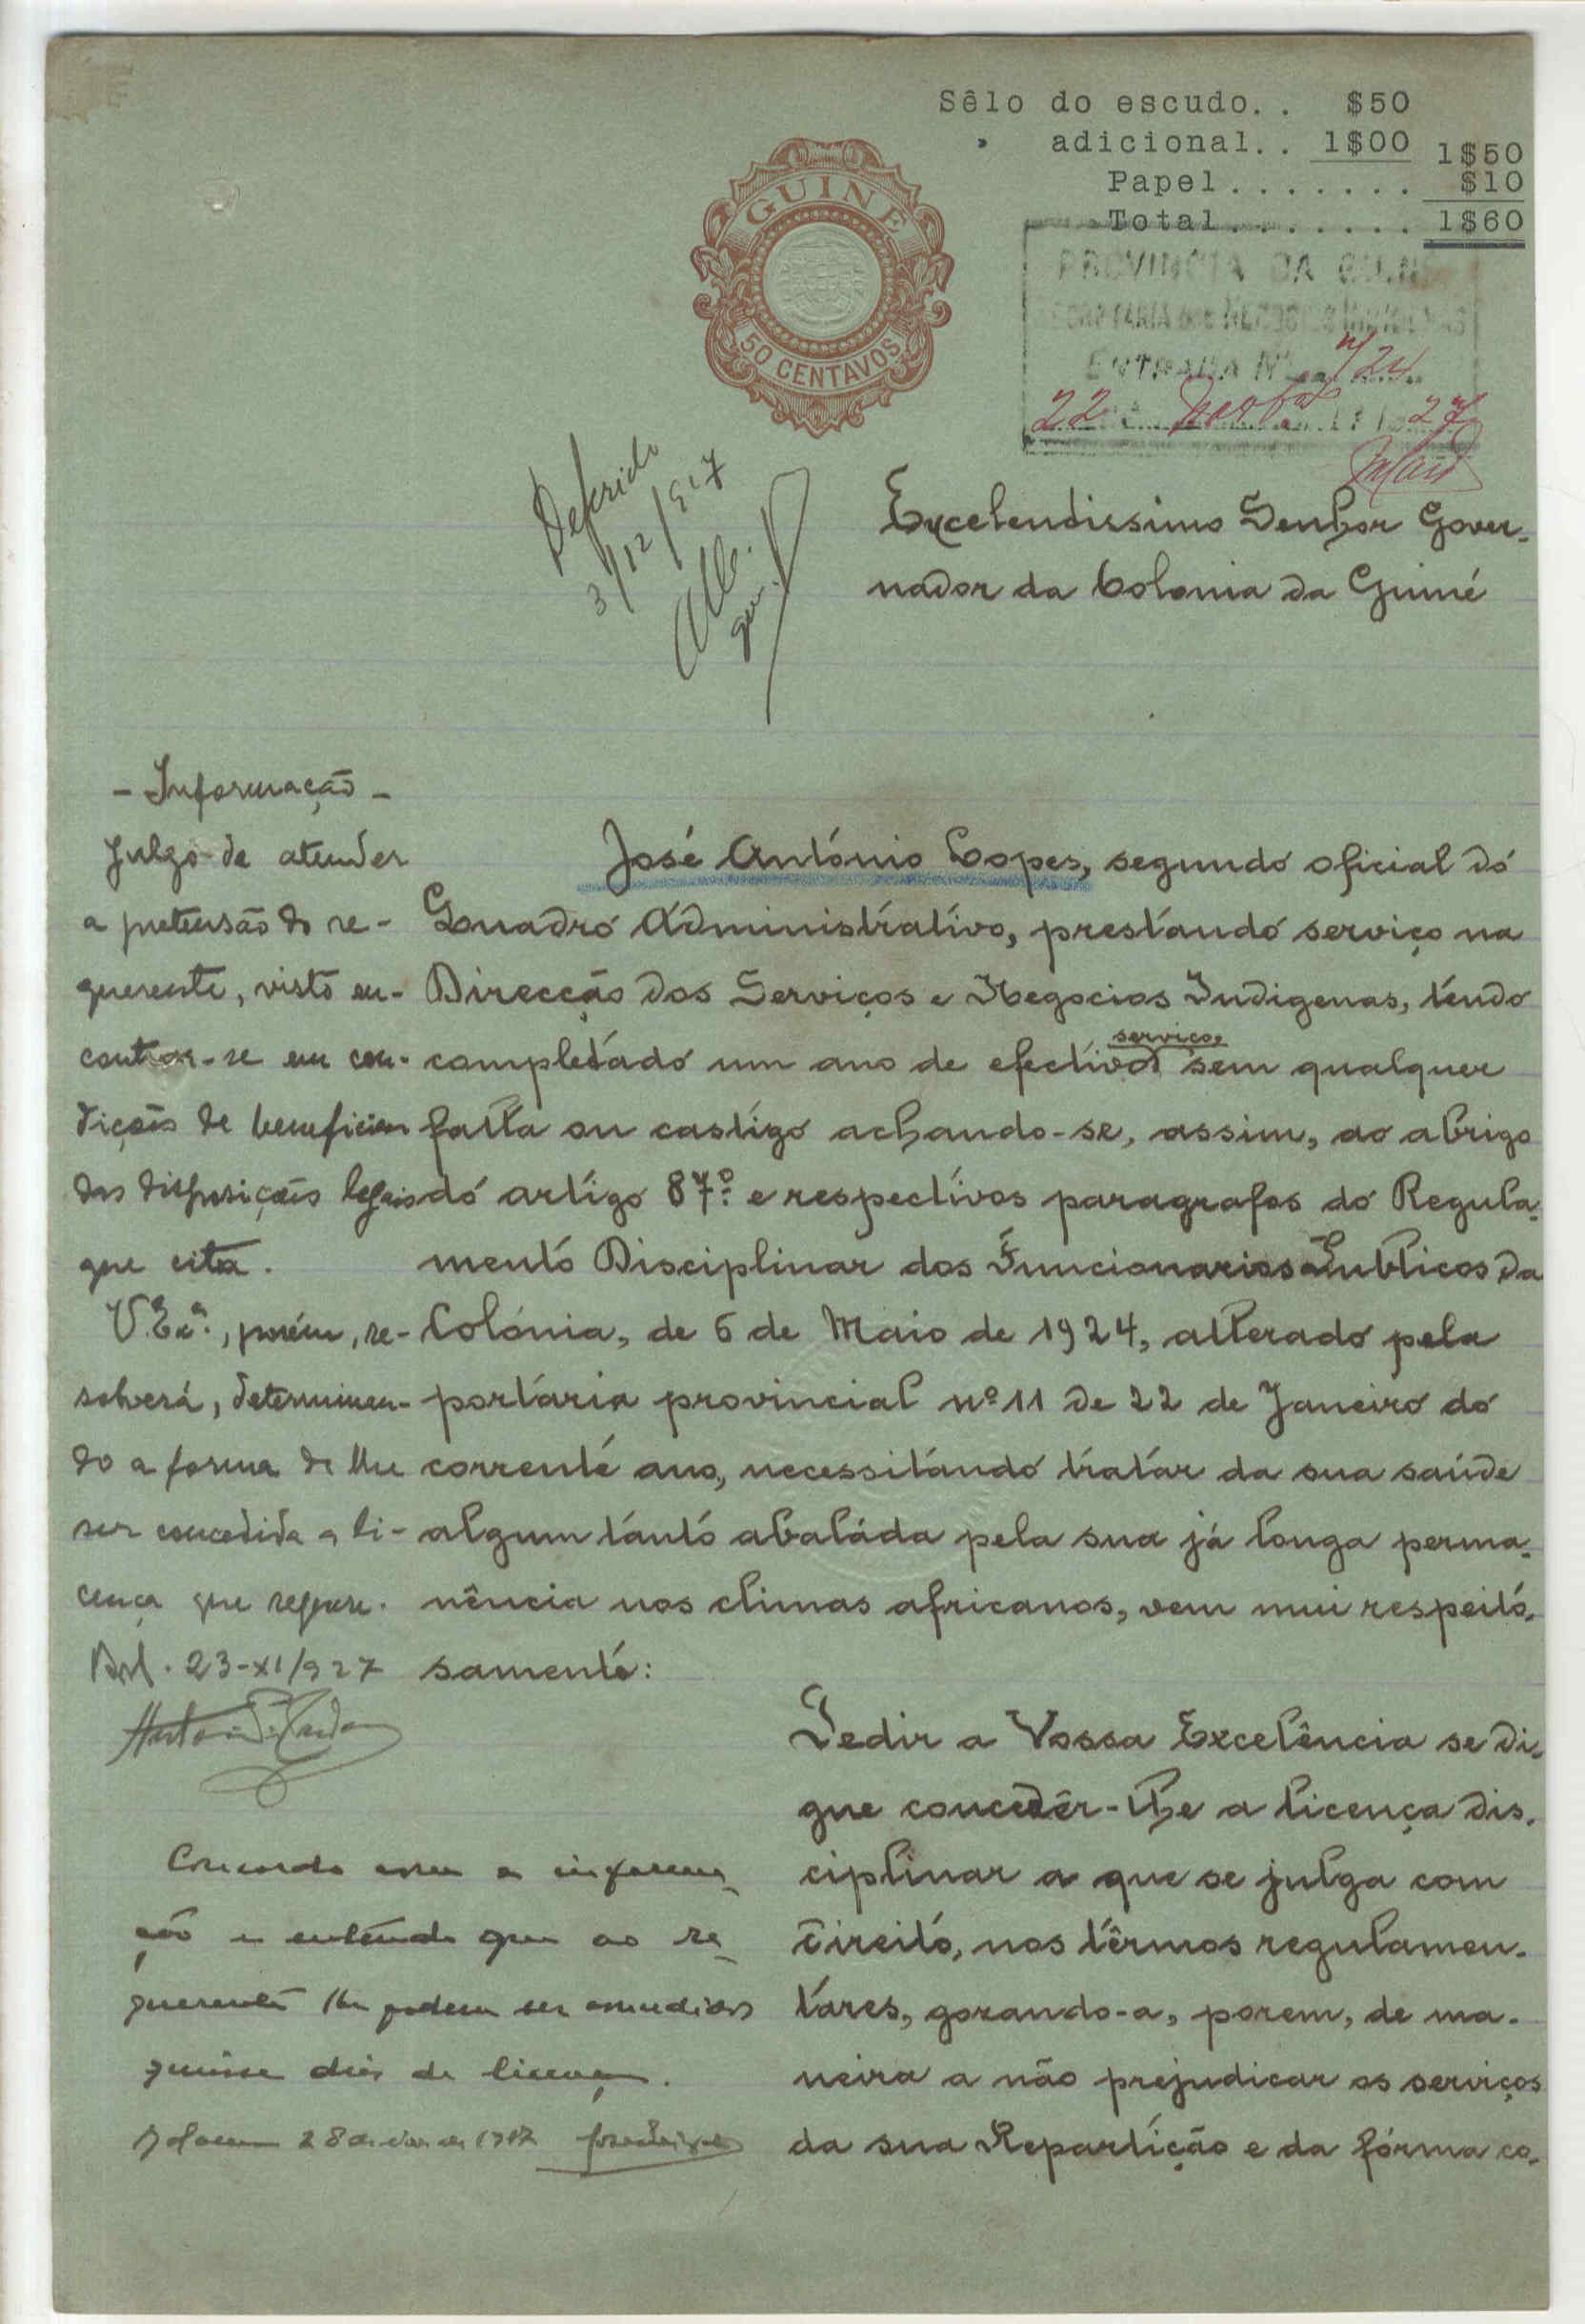 Sêlo do escudo.. $50
" adicional.. 1$00 1$50
Papel....... $10
Total....... 1$60
GUINÉ
50 CENTAVOS
PROVINCIA DA GUINÉ
ENTRADA Nº 724
22 27
Deferido
3/12/927
Excelendissimo Senhor Gover-
nador da Colonia da Guiné
- Informação -
Julgo de atender
a pretensão do re-
querente, visto en-
contrar-se em con-
dições de beneficiar
das disposições legais
que cita.
V. Exª., porém, re-
solverá, determinan-
do a forma de lhe
ser concedida a li-
cença que requere.
Bol. 23-XI/927
José António Lopes, segundo oficial do
Quadro Administrativo, prestando serviço na
Direcção dos Serviços e Negocios Indigenas, tendo
completado um ano de efectivo serviço, sem qualquer
falta ou castigo achando-se, assim, ao abrigo
do artigo 87º. e respectivos paragrafos do Regula-
mento Disciplinar dos Funcionarios Publicos da
Colónia, de 6 de Maio de 1924, alterado pela
portaria provincial nº 11 de 22 de Janeiro do
corrente ano, necessitando tratar da sua saúde
algum tanto abalada pela sua já longa perma-
nência nos climas africanos, vem mui respeito-
samente:
Pedir a Vossa Excelência se di-
gne concedêr-lhe a licença dis-
ciplinar a que se julga com
direito, nos têrmos regulamen-
tares, gozando-a, porem, de ma-
neira a não prejudicar os serviços
da sua Repartição e da fórma co-
Concordo com a informa-
ção e entendo que ao re-
querente lhe podem ser concedidos
quinze dias de licença.
Bolama 28 de de 1927